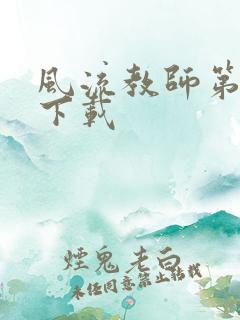 風流教師第
下載
煙鬼老白
未经同意禁止转载